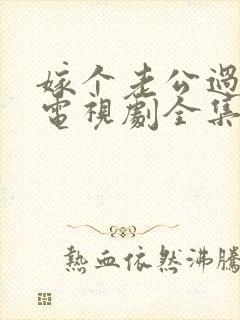 嫁个老公過
電視劇全集
熱血依然沸騰